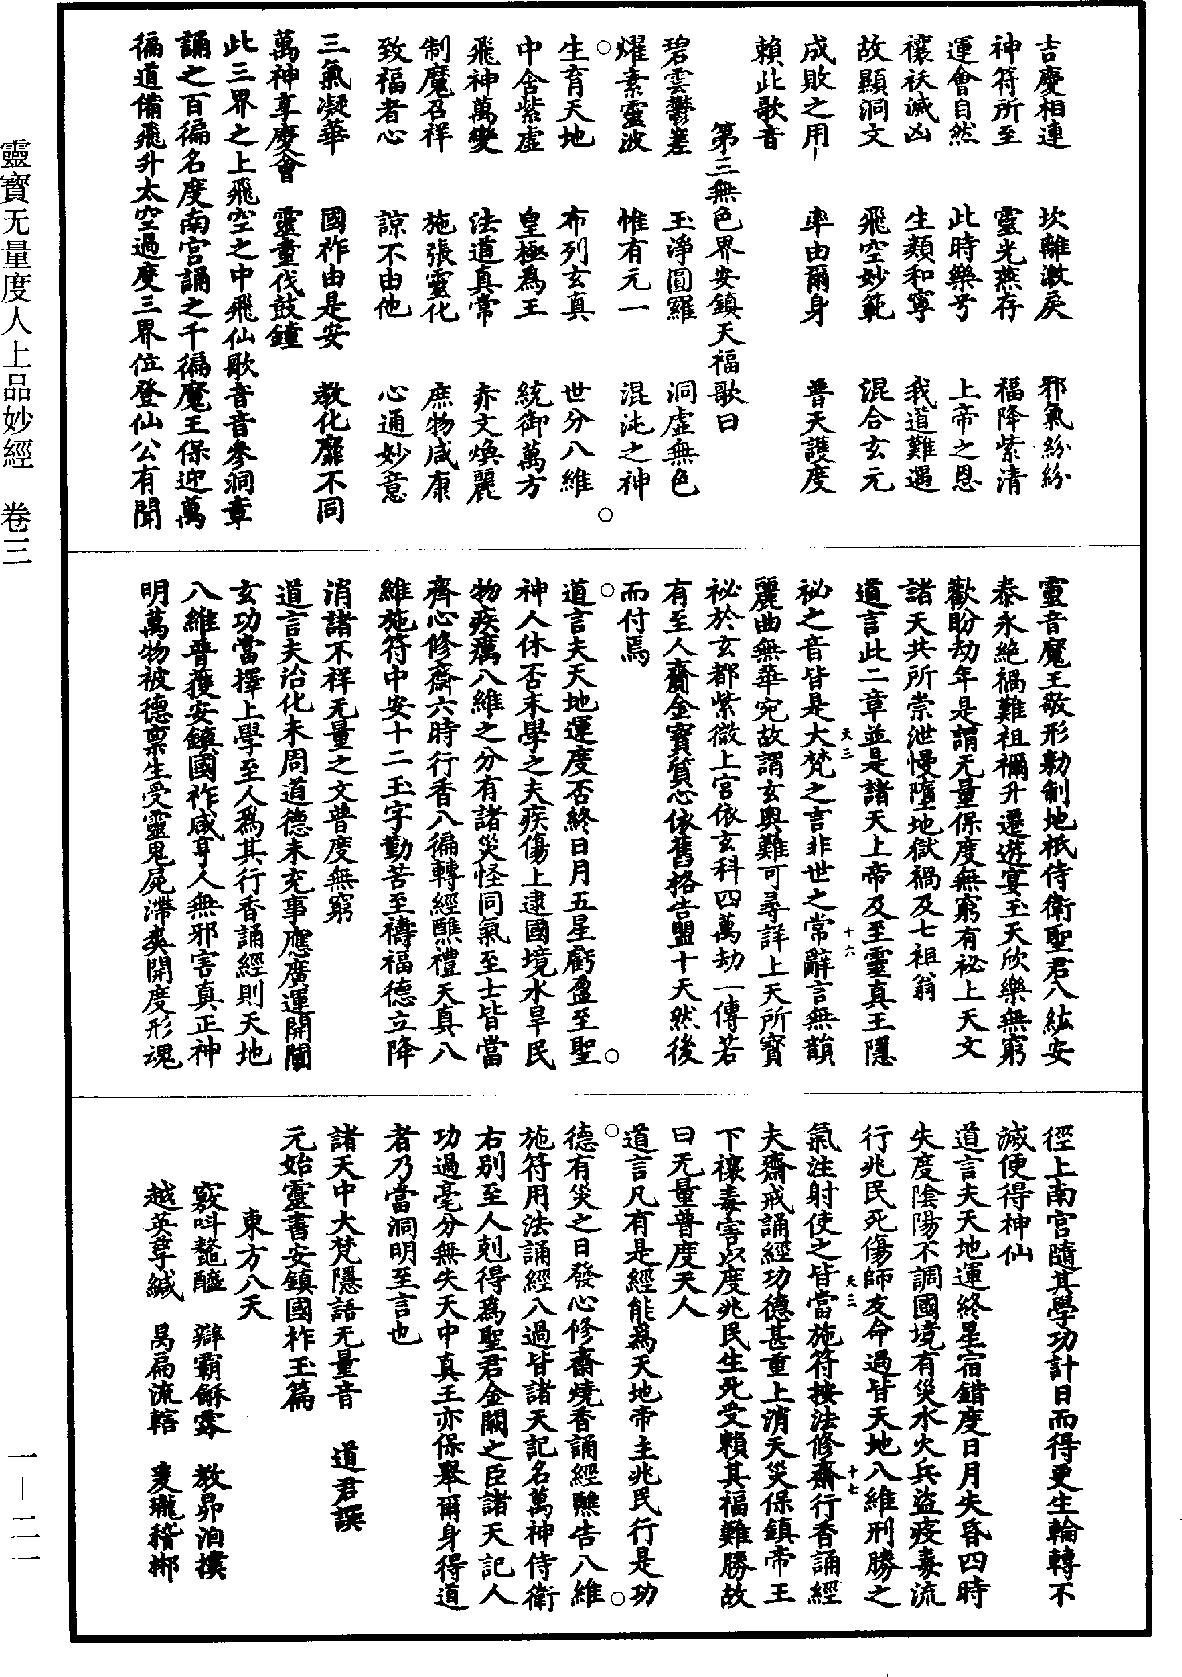 吉慶相連　坎離澂戾　邪氣紛紛
神符所至　靈光燕存　福降紫清
運會自然　此時樂兮　上帝之恩
禳祅滅凶　生類和寧　我道難遇
故顯洞文　飛空妙範　混合玄元
成敗之用　率由爾身　普天護度
賴此歌音
第三無色界安鎮天福歌曰
碧雲鬱羞　玉淨圓羅　洞虛無色
燿素靈波　惟有元一　混沌之神
○生育天地　布列玄真　世分八維○
中舍紫虛　皇極為王　統御萬方
飛神萬變　法道真常　赤文煥麗
制魔召祥　施張靈化　庶物咸康
致福者心　諒不由他　心通妙意
三氣凝華　國祚由是安　教化靡不同
萬神享慶會　靈童伐鼓鐘
此三界之上飛空之中飛仙歌音音參洞章
誦之百徧名度南宮誦之千徧魔王保迎萬
徧道備飛升太空過度三界位登仙公有聞
靈音魔王敬形勑制地祇侍衛聖君八紘安
泰永絶禍難祖禰升遷遊宴玉天欣樂無窮
歡盼劫年是謂无量保度無窮有祕上天文
諸天共所崇泄慢墮地獄禍及七祖翁
道言此二章並是諸天上帝及至靈真王隱
天三　十六
祕之音皆是大梵之言非世之常辭言無韻
麗曲無華宛故謂玄奧難可尋詳上天所寶
祕於玄都紫微上宮依玄科四萬劫一傳若
有至人齎金寶質心依舊格告盟十天然後
而付焉
○道言夫天地運度否終日月五星虧盈至聖○
神人休否末學之夫疾傷上逮國境水旱民
物疾癘八維之分有諸災怪同氣至士皆當
齊心修齋六時行香八徧轉經醮禮天真八
維施符中安十二玉字勤苦至禱福德立降
消諸不祥无量之文普度無窮
道言夫治化未周道德未充事應廣運開闡
玄功當擇上學至人為其行香誦經則天地
八維普獲安鎮國祚咸享人無邪害真正神
明萬物被德稟生受靈鬼屍滯爽開度形魂
徑上南宮隨其學功計日而得更生輪轉不
滅便得神仙
道言夫天地運終星宿錯度日月失昏四時
失度陰陽不調國境有災水火兵盜疫毒流
行兆民死傷師友命過皆天地八維刑勝之
天三　十七
氣注射使之皆當施符按法修齋行香誦經
夫齋戒誦經功德甚重上消天災保鎮帝王
下禳毒害以度兆民生死受賴其福難勝故
曰无量普度天人
道言凡有是經能為天地帝主兆民行是功
○德有災之日發心修齋燒香誦經醮告八維○
施符用法誦經八過皆諸天記名萬神侍衛
右別至人剋得為聖君金闕之臣諸天記人
功過毫分無失天中真王亦保舉爾身得道
者乃當洞明至言也
諸天中大梵隱語无量音　道君譔
元始靈書安鎮國祚玉篇
東方八天
竅呌　辯霸穌露　教昴洎撲
越英韋緘　昺扁流轄
靈寶无量度人上品妙經　卷三
一—二一